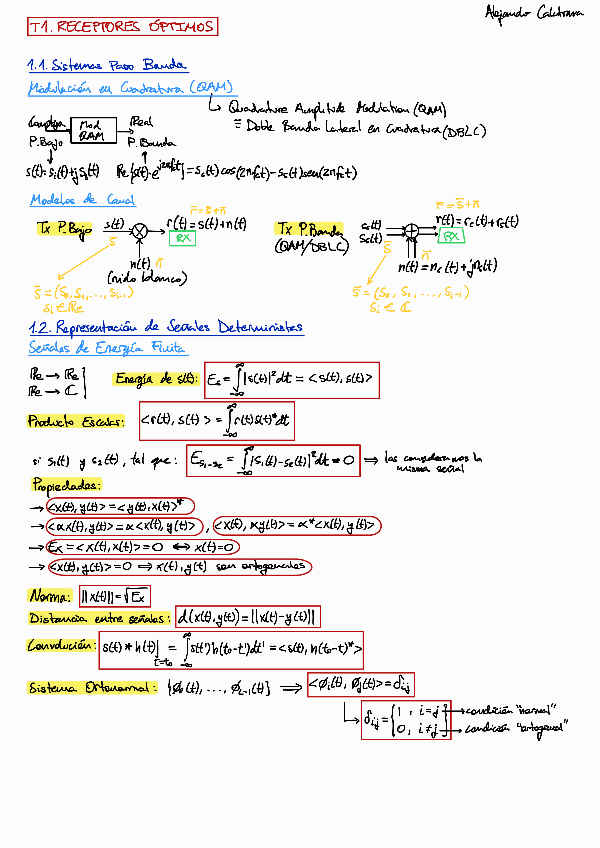 Alejandro Calatrava
T1. RECEPTORES ÓPTIMOS
1.1. Sistemas Paso Banda
Modulación en Cuadratura (QAM)
↳ Quadrature Amplitude Modulation (QAM)
≡ Doble Banda Lateral en Cuadratura (DBLC)
Compleja → Mod QAM → Real
P.Bajo P.Banda
s(t)=s_i(t)+js_q(t) Re{s(t)·e^{j2πf_ct}} = s_c(t)cos(2πf_ct)-s_s(t)sen(2πf_ct)
Modelos de Canal
Tx P.Bajo s(t) r(t)=s(t)+n(t) r̄=s̄+n̄
s̄ RX
n(t) n̄
(ruido blanco)
s̄=(s_0, s_1, ..., s_{i-1})
s_i ∈ Re
Tx P.Banda
(QAM/DBLC)
s_c(t) s_s(t) r(t)=r_c(t)+r_s(t) r̄=s̄+n̄
s̄ RX
n̄
n(t)=n_c(t)+jn_s(t)
s̄=(s_0, s_1, ..., s_{i-1})
s_i ∈ ℂ
1.2. Representación de Señales Deterministas
Señales de Energía Finita
Re → Re
Re → ℂ
Energía de s(t): E_s = ∫_{-∞}^{∞} |s(t)|² dt = <s(t), s(t)>
Producto Escalar: <r(t), s(t)> = ∫_{-∞}^{∞} r(t)s(t)* dt
si s_1(t) y s_2(t), tal que: E_{s_1-s_2} = ∫_{-∞}^{∞} |s_1(t)-s_2(t)|² dt = 0 ⟹ las consideramos la misma señal
Propiedades:
→ <x(t), y(t)> = <y(t), x(t)>*
→ <αx(t), y(t)> = α<x(t), y(t)> , <x(t), αy(t)> = α*<x(t), y(t)>
→ E_x = <x(t), x(t)> = 0 ⟷ x(t)=0
→ <x(t), y(t)> = 0 ⟹ x(t), y(t) son ortogonales
Norma: ||x(t)|| = √E_x
Distancia entre señales: d(x(t), y(t)) = ||x(t)-y(t)||
Convolución: s(t)*h(t)|_{t=t_0} = ∫_{-∞}^{∞} s(t')h(t_0-t')dt' = <s(t), h(t_0-t)*>
Sistema Ortonormal: {ϕ_0(t), ..., ϕ_{L-1}(t)} ⟹ <ϕ_i(t), ϕ_j(t)> = δ_ij
↳ δ_ij = { 1, i=j → condición "normal"
0, i≠j → condición "ortogonal"